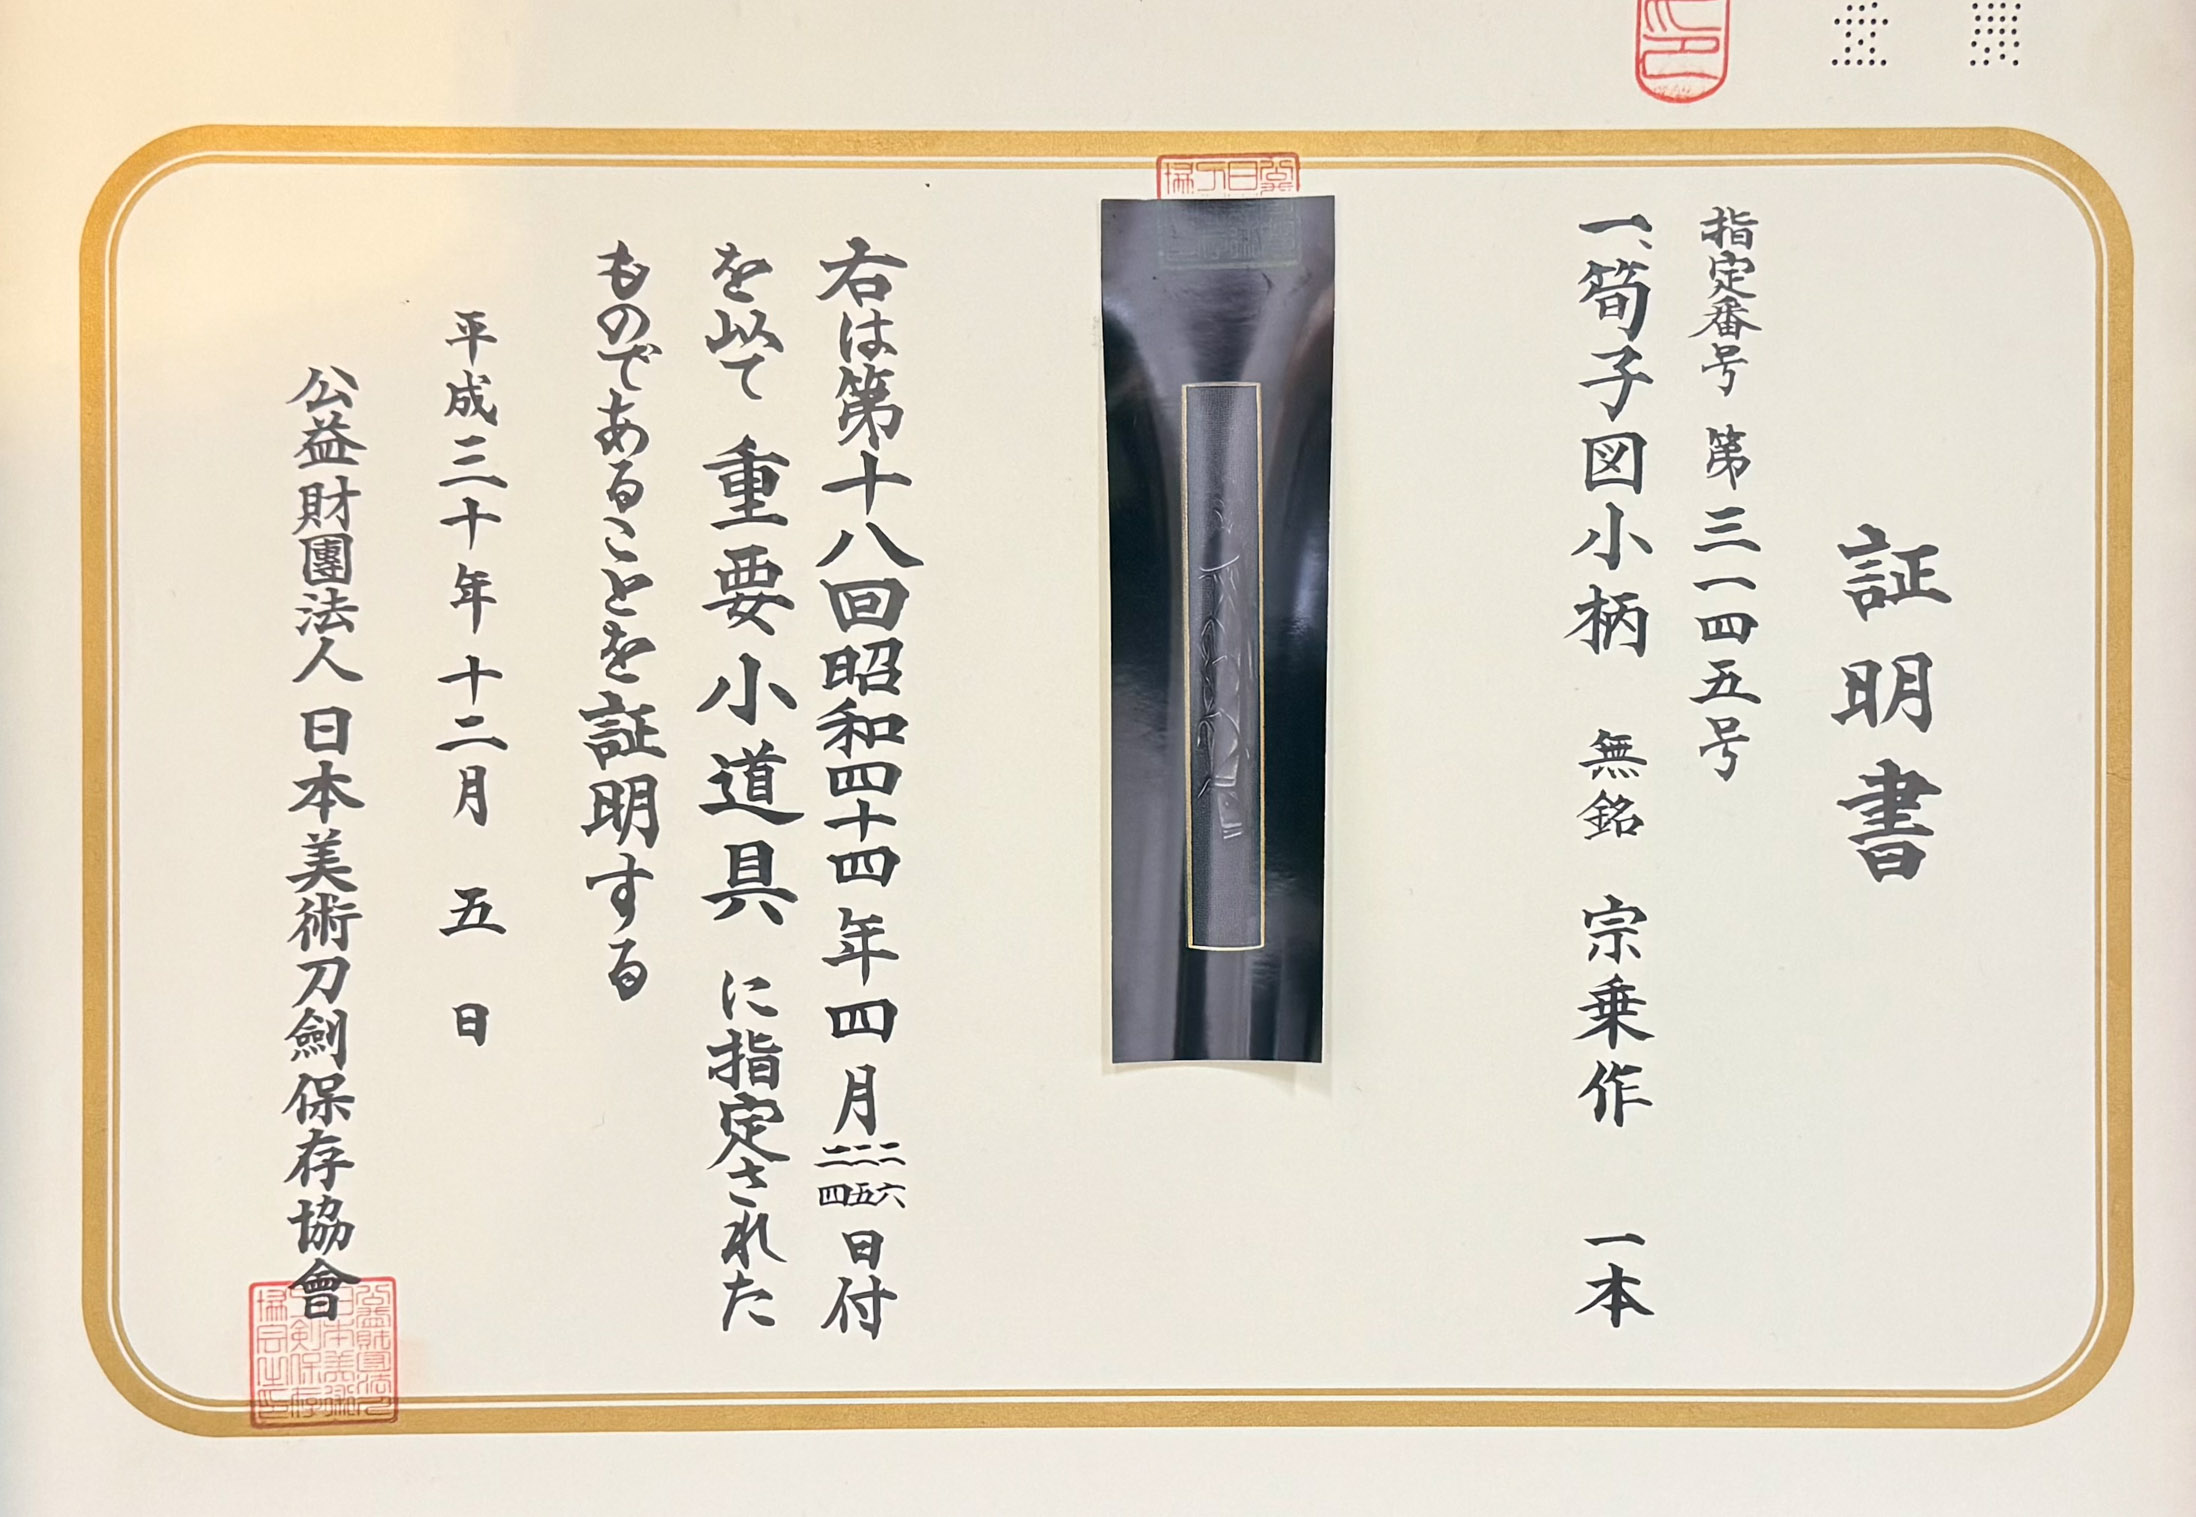 証明書
指定番号 第三一四五号
一、筍子図小柄 無銘 宗乗作 一本
右は第十八回昭和四十四年四月二四二五二六日付
を以て重要小道具に指定された
ものであることを証明する
平成三十年十二月五日
公益財團法人日本美術刀劍保存協會